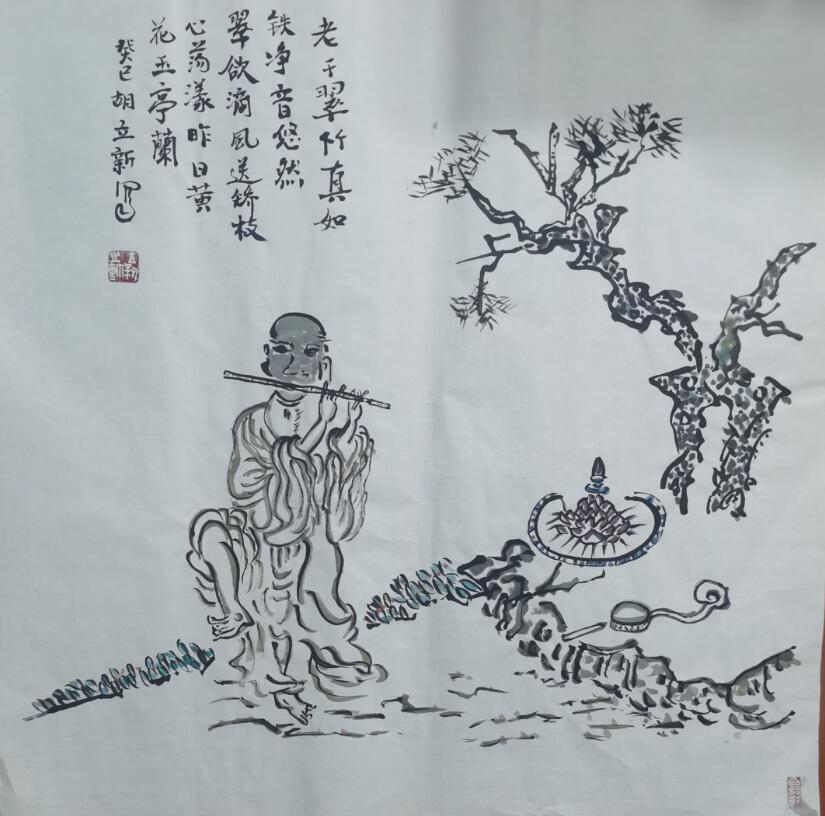 老干翠竹真如
铁净音悠然
翠欲滴风送娇枝
心荡漾昨日黄
花玉亭兰
癸巳胡立新写